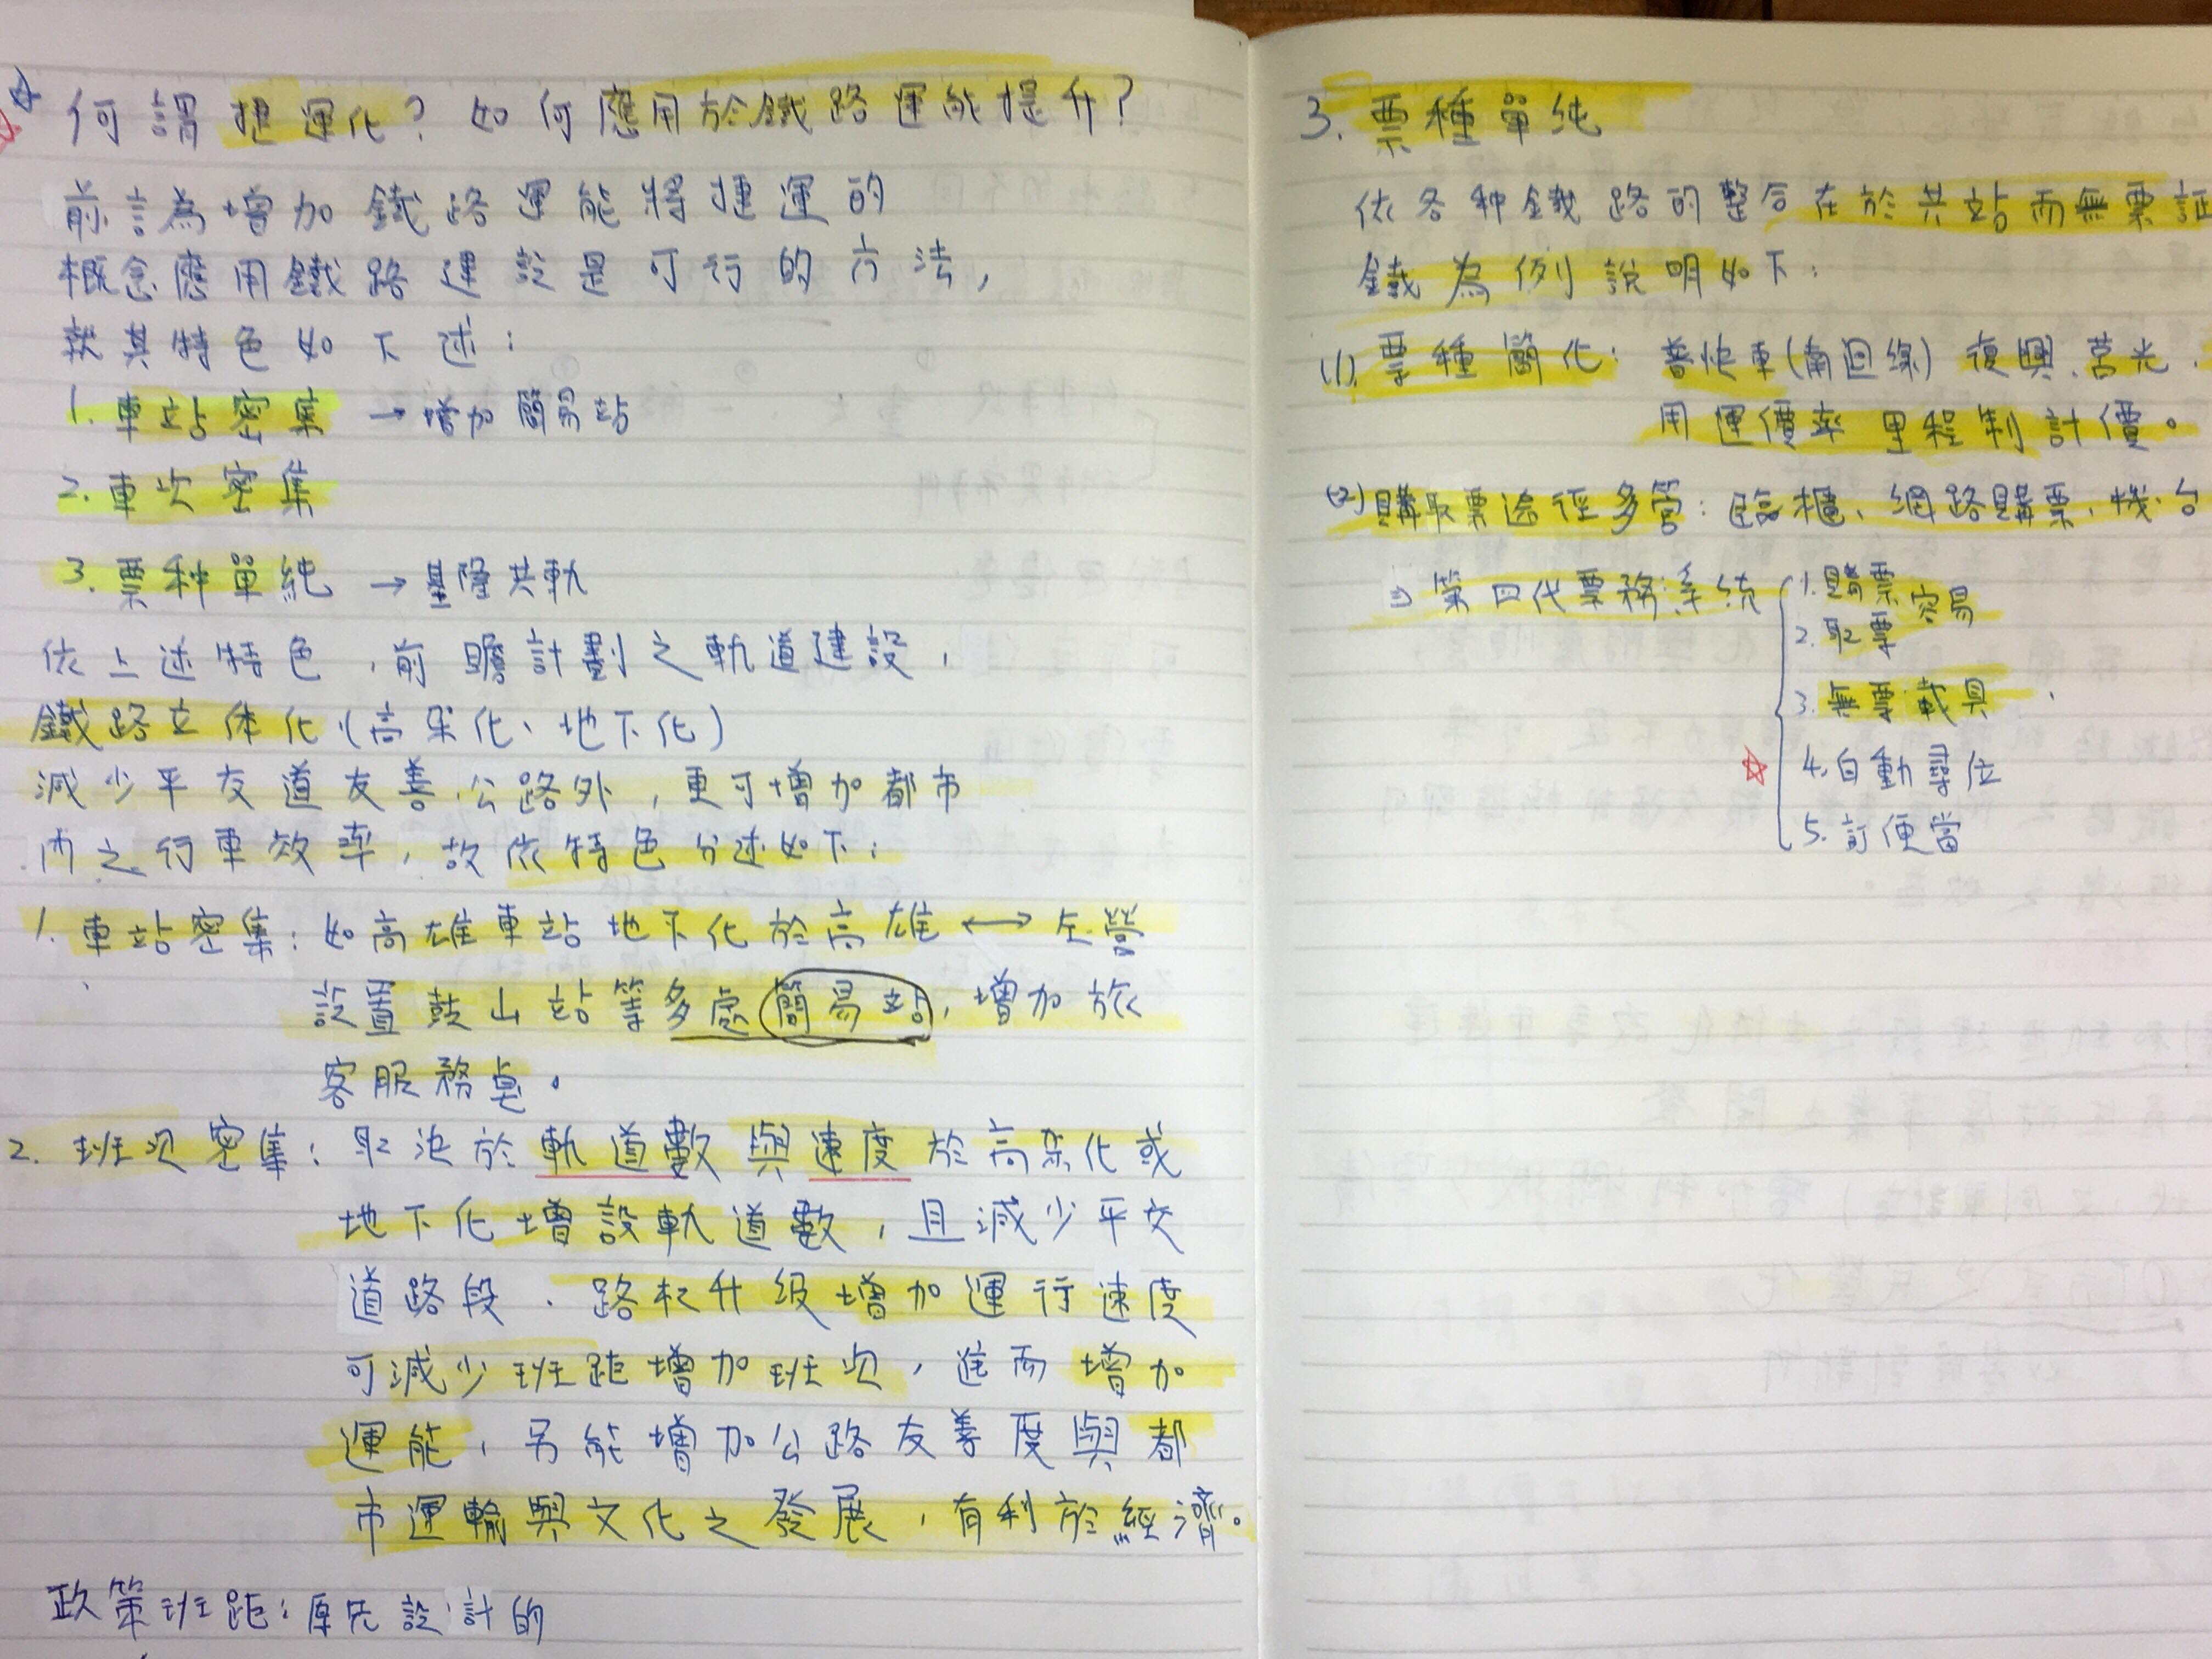 何謂捷運化？如何應用於鐵路運能提升？
前言為增加鐵路運能將捷運的
概念應用鐵路建設是可行的方法，
就其特色如下述：
1. 車站密集 → 增加簡易站
2. 車次密集
3. 票种單純 → 基隆共軌
依上述特色，前瞻計劃之軌道建設，
鐵路立体化（高架化、地下化）
減少平交道友善公路外，更可增加都市
內之行車效率，故依特色分述如下：
1. 車站密集：如高雄車站地下化於高雄 ←→ 左營
設置鼓山站等多處簡易站，增加旅
客服務桌。
2. 班次密集：取決於軌道數與速度於高架化或
地下化增設軌道數，且減少平交
道路段、路权升級增加運行速度
可減少班距增加班次，進而增加
運能，另能增加公路友善度與都
市運輸與文化之發展，有利於經濟。
政策班距：原先設計的
3. 票種單純
依各种鐵路的整合在於共站而無票証
鐵為例說明如下：
(1). 票種簡化：普快車(南迴線) 復興、莒光、
用運價率里程制計價。
(2) 購取票途徑多管：臨櫃、網路購票、機台
⇒ 第四代票務系統
1. 購票容易
2. 取票
3. 無票載具、
4. 自動尋位
5. 訂便當